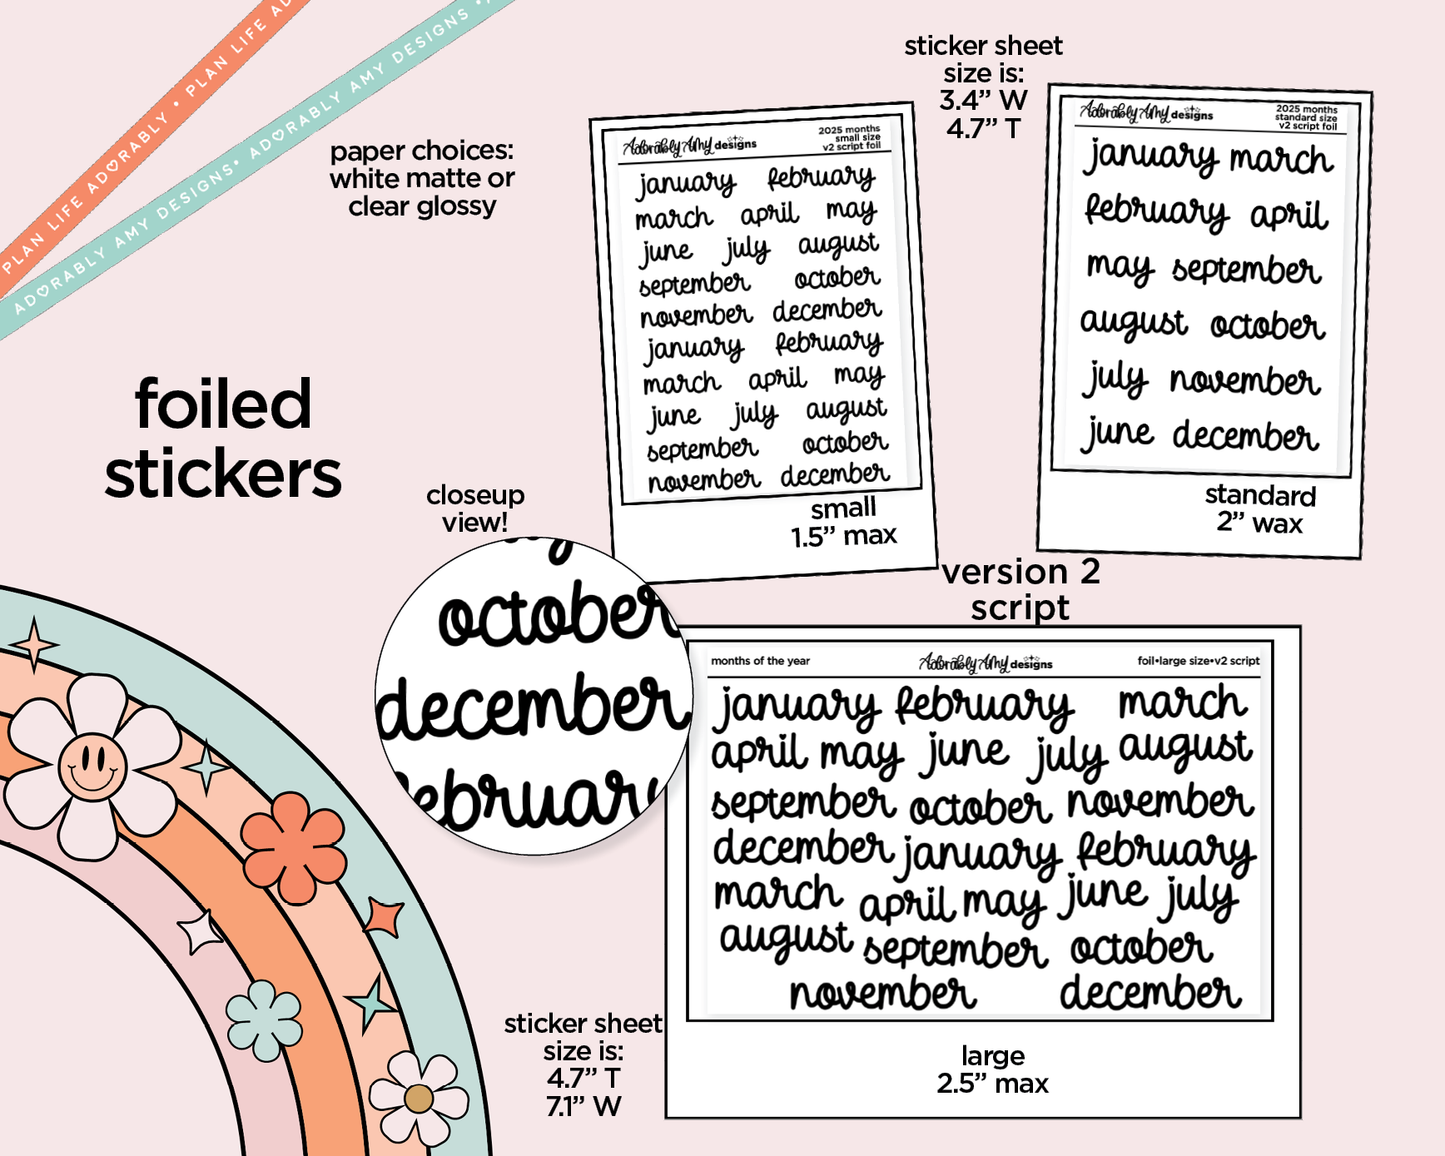 PLAN LIFE ADORABLY • PLAN LIFE AD
ADORABLY AMY DESIGNS• ADORABLY AMY DESIGNS •
paper choices:
white matte or
clear glossy
foiled
stickers
closeup
view!
october
december
february
sticker sheet
size is:
3.4” W
4.7” T
Adorably Amy designs
2025 months
small size
v2 script foil
january february
march april may
june july august
september october
november december
january february
march april may
june july august
september october
november december
small
1.5” max
Adorably Amy designs
2025 months
standard size
v2 script foil
january march
february april
may september
august october
july november
june december
standard
2” wax
version 2
script
months of the year
Adorably Amy designs
foil•large size•v2 script
january february march
april may june july august
september october november
december january february
march april may june july
august september october
november december
large
2.5” max
sticker sheet
size is:
4.7” T
7.1” W